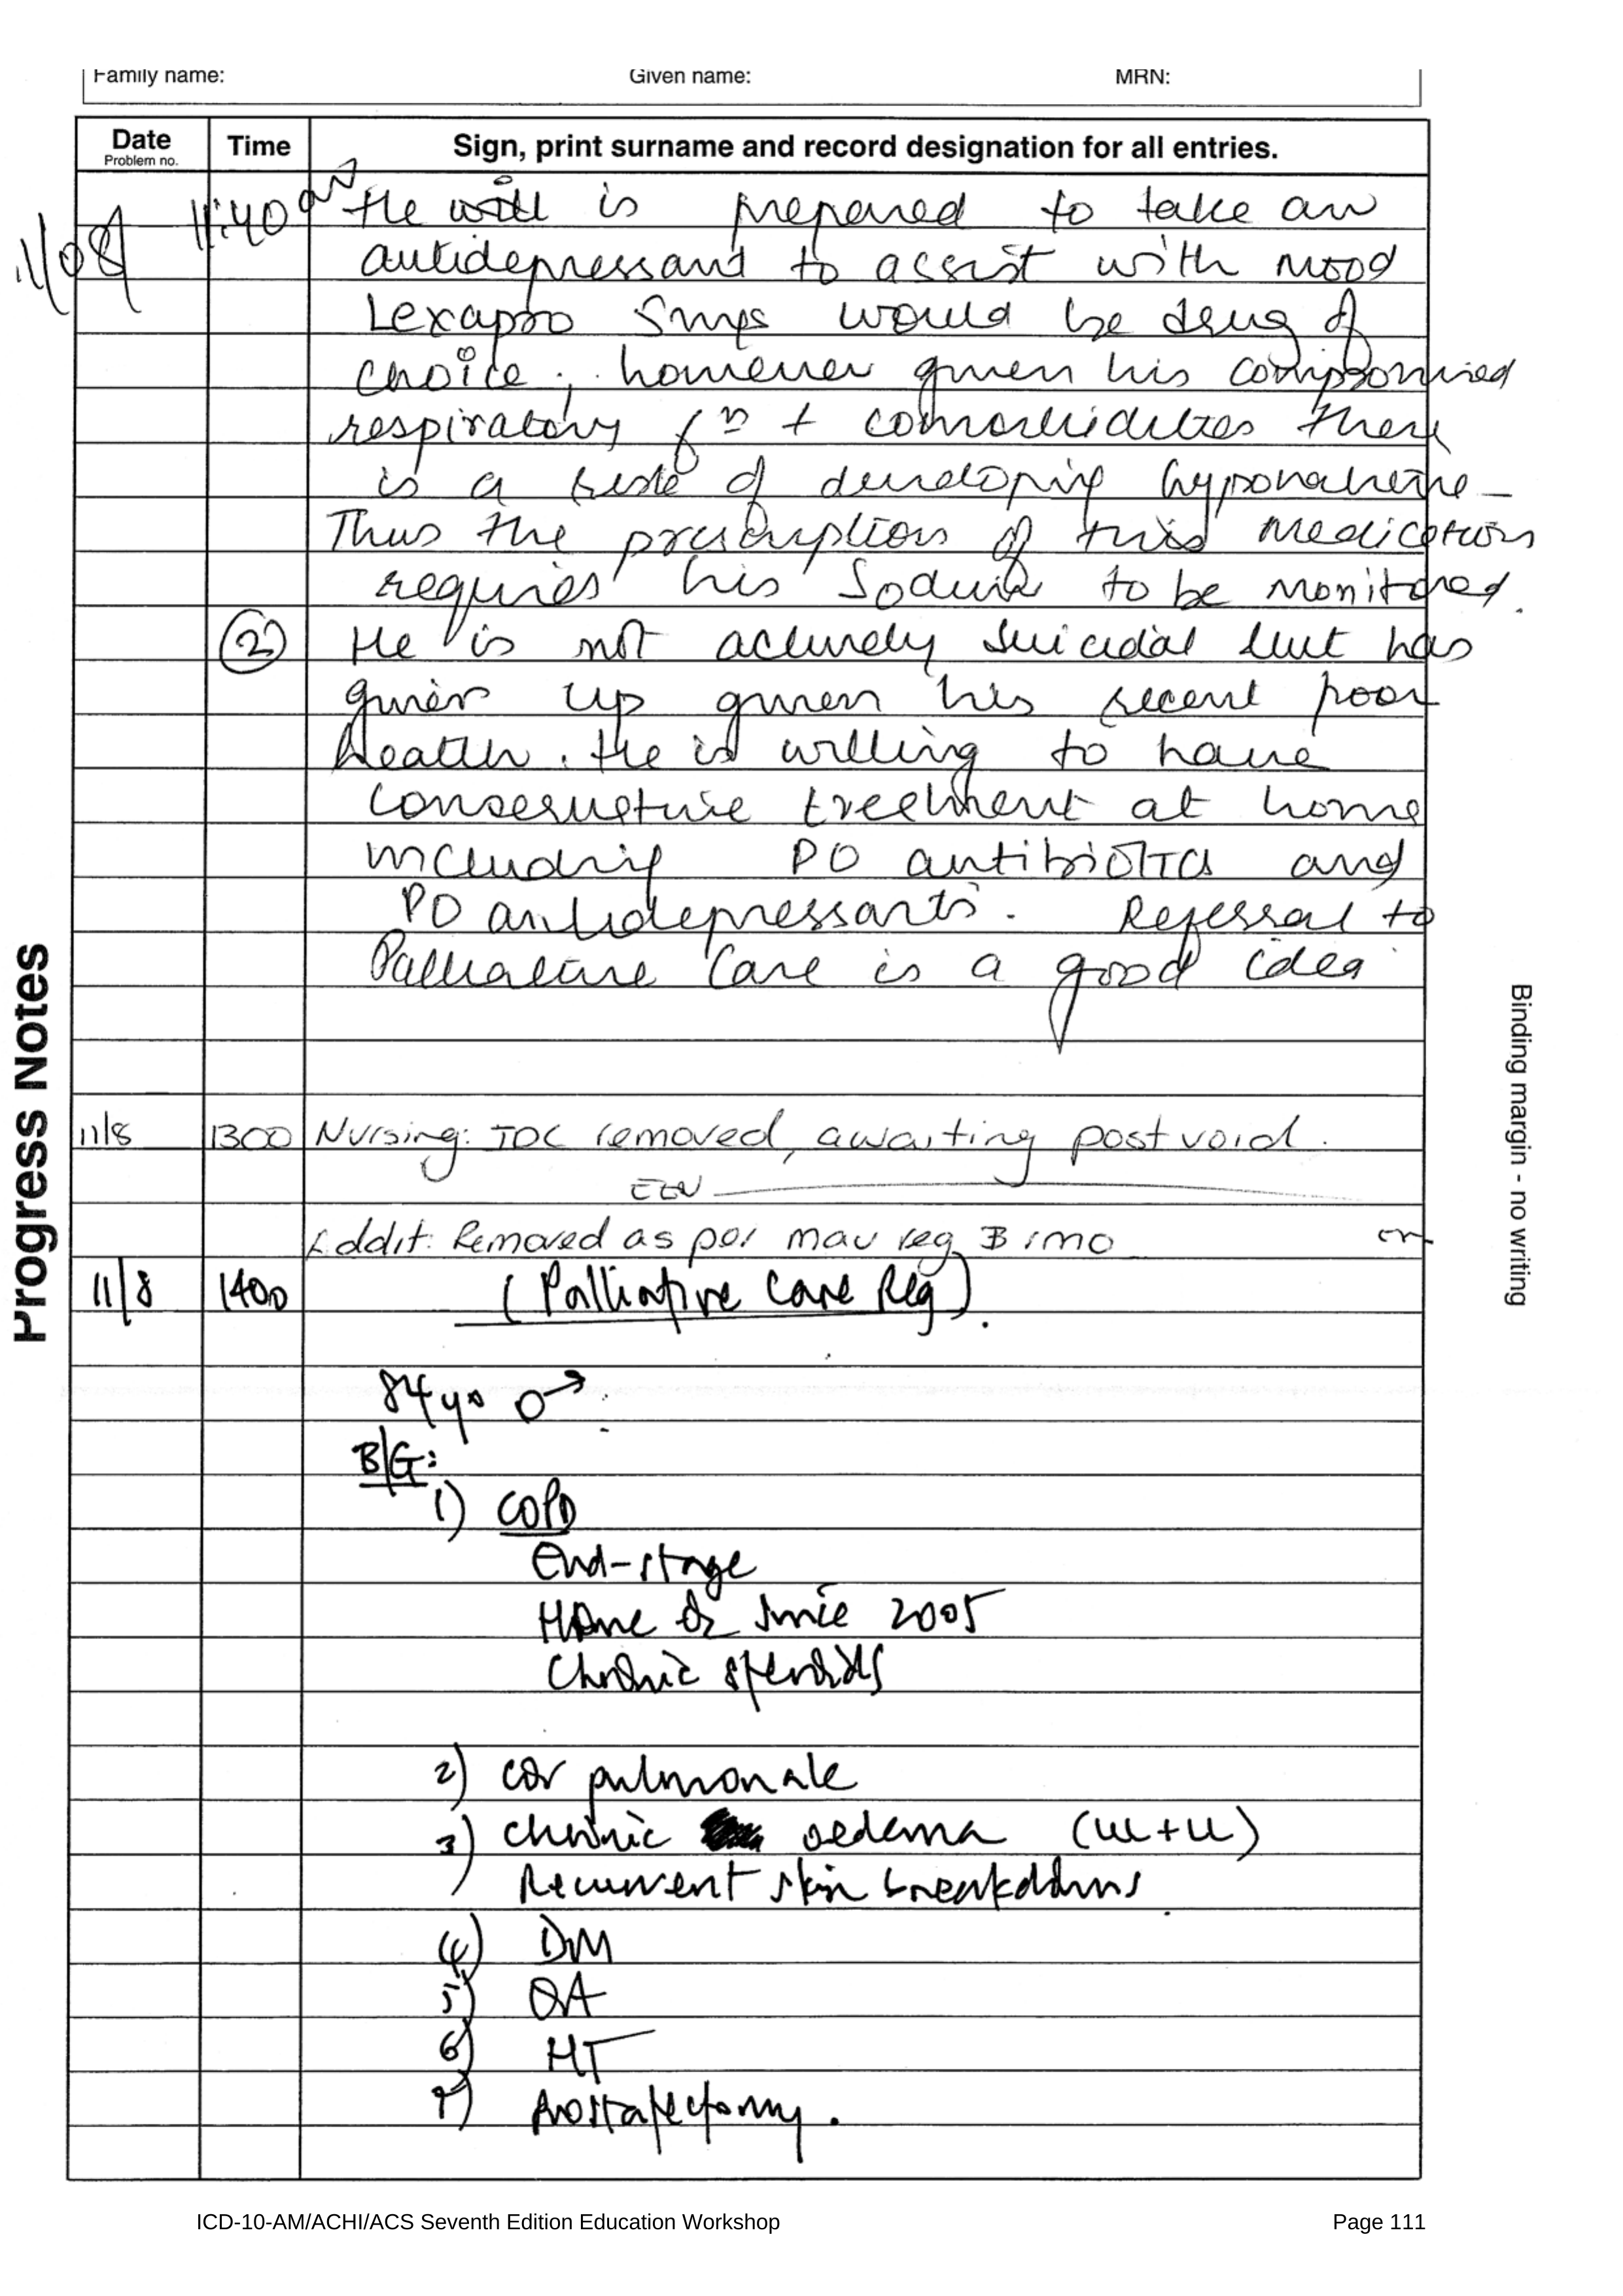 Family name: Given name: MRN:
Date Time Sign, print surname and record designation for all entries.
Problem no.
11/08 11:40am He will is prepared to take an
antidepressant to assist with mood
Lexapro 5mgs would be drug of
choice; however given his compromised
respiratory fn + comorbidities there
is a risk of developing hyponatremia
Thus the prescription of this medication
requires his Sodium to be monitored.
(2) He is not actively suicidal but has
given up given his recent poor
health. He is willing to have
conservative treatment at home
including PO antibiotics and
PO antidepressants. Referral to
Palliative Care is a good idea
11/8 1300 Nursing: IDC removed, awaiting post void.
EEN
Addit: Removed as per reg
11/8 1400 (Palliative Care Reg).
84yo ♂
B/G:
1) COPD
End-stage
Home O2 since 2005
Chronic steroids
2) cor pulmonale
3) chronic oedema (UL+LL)
Recurrent skin breakdowns
(4) DM
5) OA
6) HT
7) Prostatectomy.
Progress Notes
Binding margin - no writing
ICD-10-AM/ACHI/ACS Seventh Edition Education Workshop Page 111